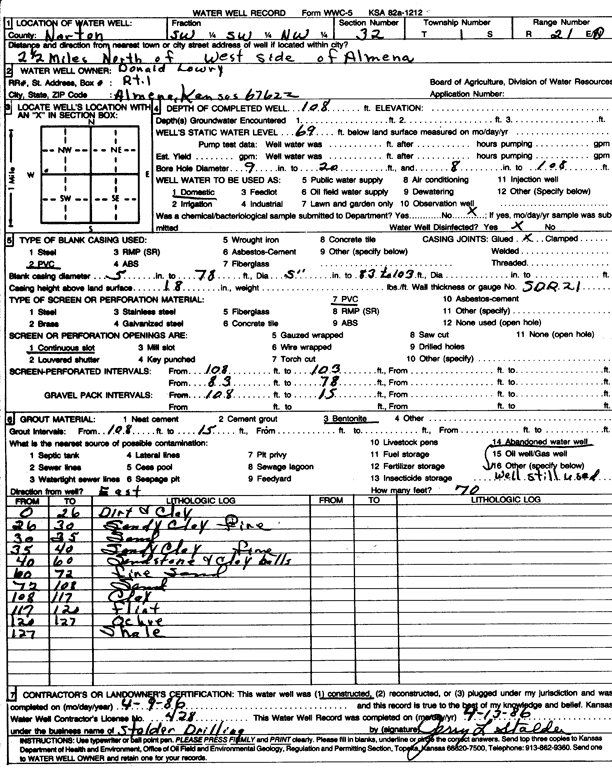 WATER WELL RECORD Form WWC-5 KSA 82a-1212
1 LOCATION OF WATER WELL: Fraction Section Number Township Number Range Number
County: Norton SW ¼ SW ¼ NW ¼ 32 T S R 21 E/W
Distance and direction from nearest town or city street address of well if located within city?
2½ Miles North of West side of Almena
2 WATER WELL OWNER: Donald Lowry
RR#, St. Address, Box # : Rt. 1 Board of Agriculture, Division of Water Resources
City, State, ZIP Code : Almena, Kansas 67622 Application Number:
3 LOCATE WELL'S LOCATION WITH AN "X" IN SECTION BOX:
N
NW NE
W E
SW SE
S
1 Mile
4 DEPTH OF COMPLETED WELL 108 ft. ELEVATION:
Depth(s) Groundwater Encountered 1. ft. 2. ft. 3. ft.
WELL'S STATIC WATER LEVEL 69 ft. below land surface measured on mo/day/yr
Pump test data: Well water was ft. after hours pumping gpm
Est. Yield gpm: Well water was ft. after hours pumping gpm
Bore Hole Diameter 9 in. to 20 ft., and 8 in. to 108 ft.
WELL WATER TO BE USED AS: 5 Public water supply 8 Air conditioning 11 Injection well
1 Domestic 3 Feedlot 6 Oil field water supply 9 Dewatering 12 Other (Specify below)
2 Irrigation 4 Industrial 7 Lawn and garden only 10 Observation well
Was a chemical/bacteriological sample submitted to Department? Yes No X ; If yes, mo/day/yr sample was submitted
Water Well Disinfected? Yes X No
5 TYPE OF BLANK CASING USED: 5 Wrought iron 8 Concrete tile CASING JOINTS: Glued X Clamped
1 Steel 3 RMP (SR) 6 Asbestos-Cement 9 Other (specify below) Welded
2 PVC 4 ABS 7 Fiberglass Threaded
Blank casing diameter 5 in. to 78 ft., Dia 5" in. to 83 to 103 ft., Dia in. to ft.
Casing height above land surface 18 in., weight lbs./ft. Wall thickness or gauge No. SDR 21
TYPE OF SCREEN OR PERFORATION MATERIAL: 7 PVC 10 Asbestos-cement
1 Steel 3 Stainless steel 5 Fiberglass 8 RMP (SR) 11 Other (specify)
2 Brass 4 Galvanized steel 6 Concrete tile 9 ABS 12 None used (open hole)
SCREEN OR PERFORATION OPENINGS ARE: 5 Gauzed wrapped 8 Saw cut 11 None (open hole)
1 Continuous slot 3 Mill slot 6 Wire wrapped 9 Drilled holes
2 Louvered shutter 4 Key punched 7 Torch cut 10 Other (specify)
SCREEN-PERFORATED INTERVALS: From 108 ft. to 103 ft., From ft. to ft.
From 83 ft. to 78 ft., From ft. to ft.
GRAVEL PACK INTERVALS: From 108 ft. to 15 ft., From ft. to ft.
From ft. to ft., From ft. to ft.
6 GROUT MATERIAL: 1 Neat cement 2 Cement grout 3 Bentonite 4 Other
Grout Intervals: From 108 ft. to 15 ft., From ft. to ft., From ft. to ft.
What is the nearest source of possible contamination: 10 Livestock pens 14 Abandoned water well
1 Septic tank 4 Lateral lines 7 Pit privy 11 Fuel storage 15 Oil well/Gas well
2 Sewer lines 5 Cess pool 8 Sewage lagoon 12 Fertilizer storage 16 Other (specify below)
3 Watertight sewer lines 6 Seepage pit 9 Feedyard 13 Insecticide storage well still used
Direction from well? East How many feet? 70
FROM TO LITHOLOGIC LOG FROM TO LITHOLOGIC LOG
0 26 Dirt & Clay
26 30 Sandy Clay Fine
30 35 Sand
35 40 Sandy Clay Fine
40 60 Sandstone & Clay balls
60 72 Fine Sand
72 108 Sand
108 117 Clay
117 120 Flint
120 127 Ochre
127 Shale
7 CONTRACTOR'S OR LANDOWNER'S CERTIFICATION: This water well was (1) constructed, (2) reconstructed, or (3) plugged under my jurisdiction and was
completed on (mo/day/year) 4-9-86 and this record is true to the best of my knowledge and belief. Kansas
Water Well Contractor's License No. 428 This Water Well Record was completed on (mo/day/yr) 4-13-86
under the business name of Stalder Drilling by (signature) Jerry L Stalder
INSTRUCTIONS: Use typewriter or ball point pen. PLEASE PRESS FIRMLY and PRINT clearly. Please fill in blanks, underline or circle the correct answers. Send top three copies to Kansas
Department of Health and Environment, Office of Oil Field and Environmental Geology, Regulation and Permitting Section, Topeka, Kansas 66620-7500, Telephone: 913-862-9360. Send one
to WATER WELL OWNER and retain one for your records.